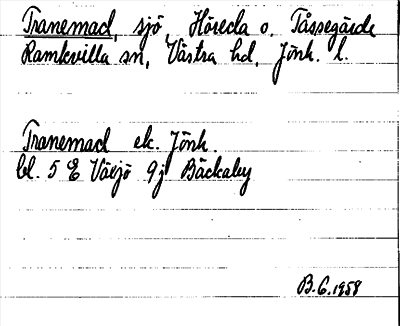 Tranemad, sjö, Hörecla o. Tåssegårde
Ramkvilla sn, Västra hd, Jönk. l.
Tranemad ek. Jönk.
bl. 5 E Växjö 9j Bäckaby
B.G.1958